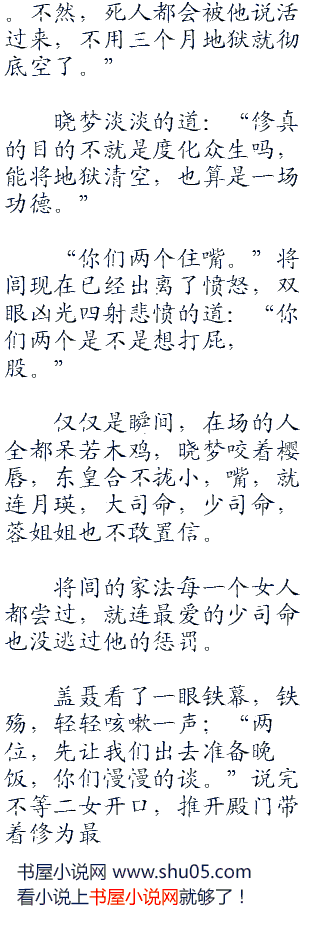 。不然，死人都会被他说活
过来，不用三个月地狱就彻
底空了。”
晓梦淡淡的道：“修真
的目的不就是度化众生吗，
能将地狱清空，也算是一场
功德。”
“你们两个住嘴。”将
闾现在已经出离了愤怒，双
眼凶光四射悲愤的道：“你
们两个是不是想打屁，
股。”
仅仅是瞬间，在场的人
全都呆若木鸡，晓梦咬着樱
唇，东皇合不拢小，嘴，就
连月瑛，大司命，少司命，
蓉姐姐也不敢置信。
将闾的家法每一个女人
都尝过，就连最爱的少司命
也没逃过他的惩罚。
盖聂看了一眼铁幕，铁
殇，轻轻咳嗽一声；“两
位，先让我们出去准备晚
饭，你们慢慢的谈。”说完
不等二女开口，推开殿门带
着修为最
书屋小说网 www.shu05.com
看小说上书屋小说网就够了！